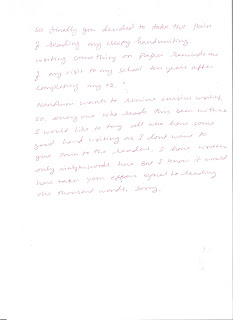 So finally you decided to take the pain
of reading my sleepy handwriting.
writing something on paper reminds me
of my visit to my school ten years after
completing my 12.
Nandhum wants to revive cursive writing
so, among one who reads this been with me
I would like to tag all who have some
good hand writing as I dont want to
give pain to the readers. I have written
only ninety words here. But I know it would
have taken your efforts equal to reading
one thousand words. Sorry.